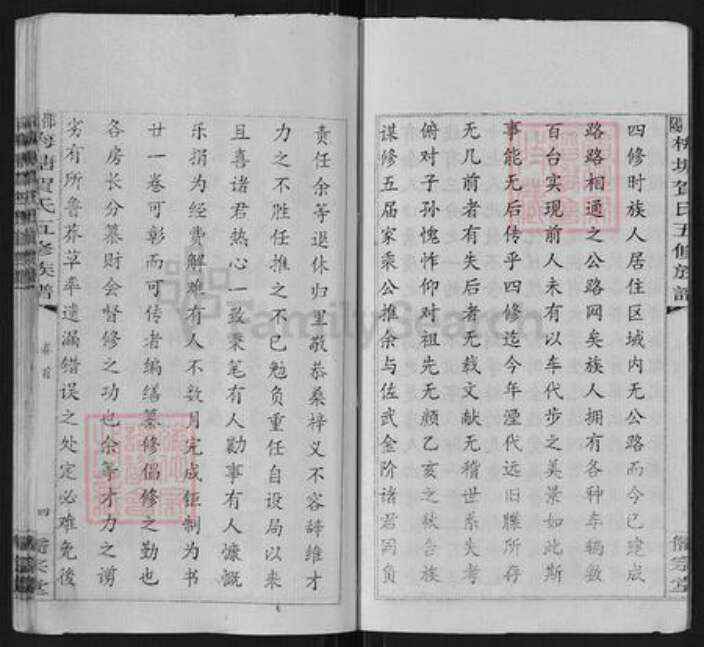 四修时族人居住区域内无公路而今已建成
路路相通之公路网矣族人拥有各种车辆数
百台实现前人未有以车代步之美景如此斯
事能无后传乎四修迄今年湮代远旧牒所存
无几前者有失后者无载文献无稽世系失考
俯对子孙愧怍仰对祖先无颜乙亥之秋合族
谋修五届家乘公推余与佐武金阶诸君同负
责任余等退休归里敬恭桑梓义不容辞维才
力之不胜任推之不已勉负重任自设局以来
且喜诸君热心一致秉笔有人勷事有人慷慨
乐捐为经费解难有人不数月完成钜制为书
廿一卷可彰而可传者编缮纂修倡修之勤也
各房长分募财会督修之功也余等才力之谫
劣有所鲁莽草率遗漏错误之处定必难免後
贺氏五修族谱
卷首
四
贺氏五修族谱
FamilySearch